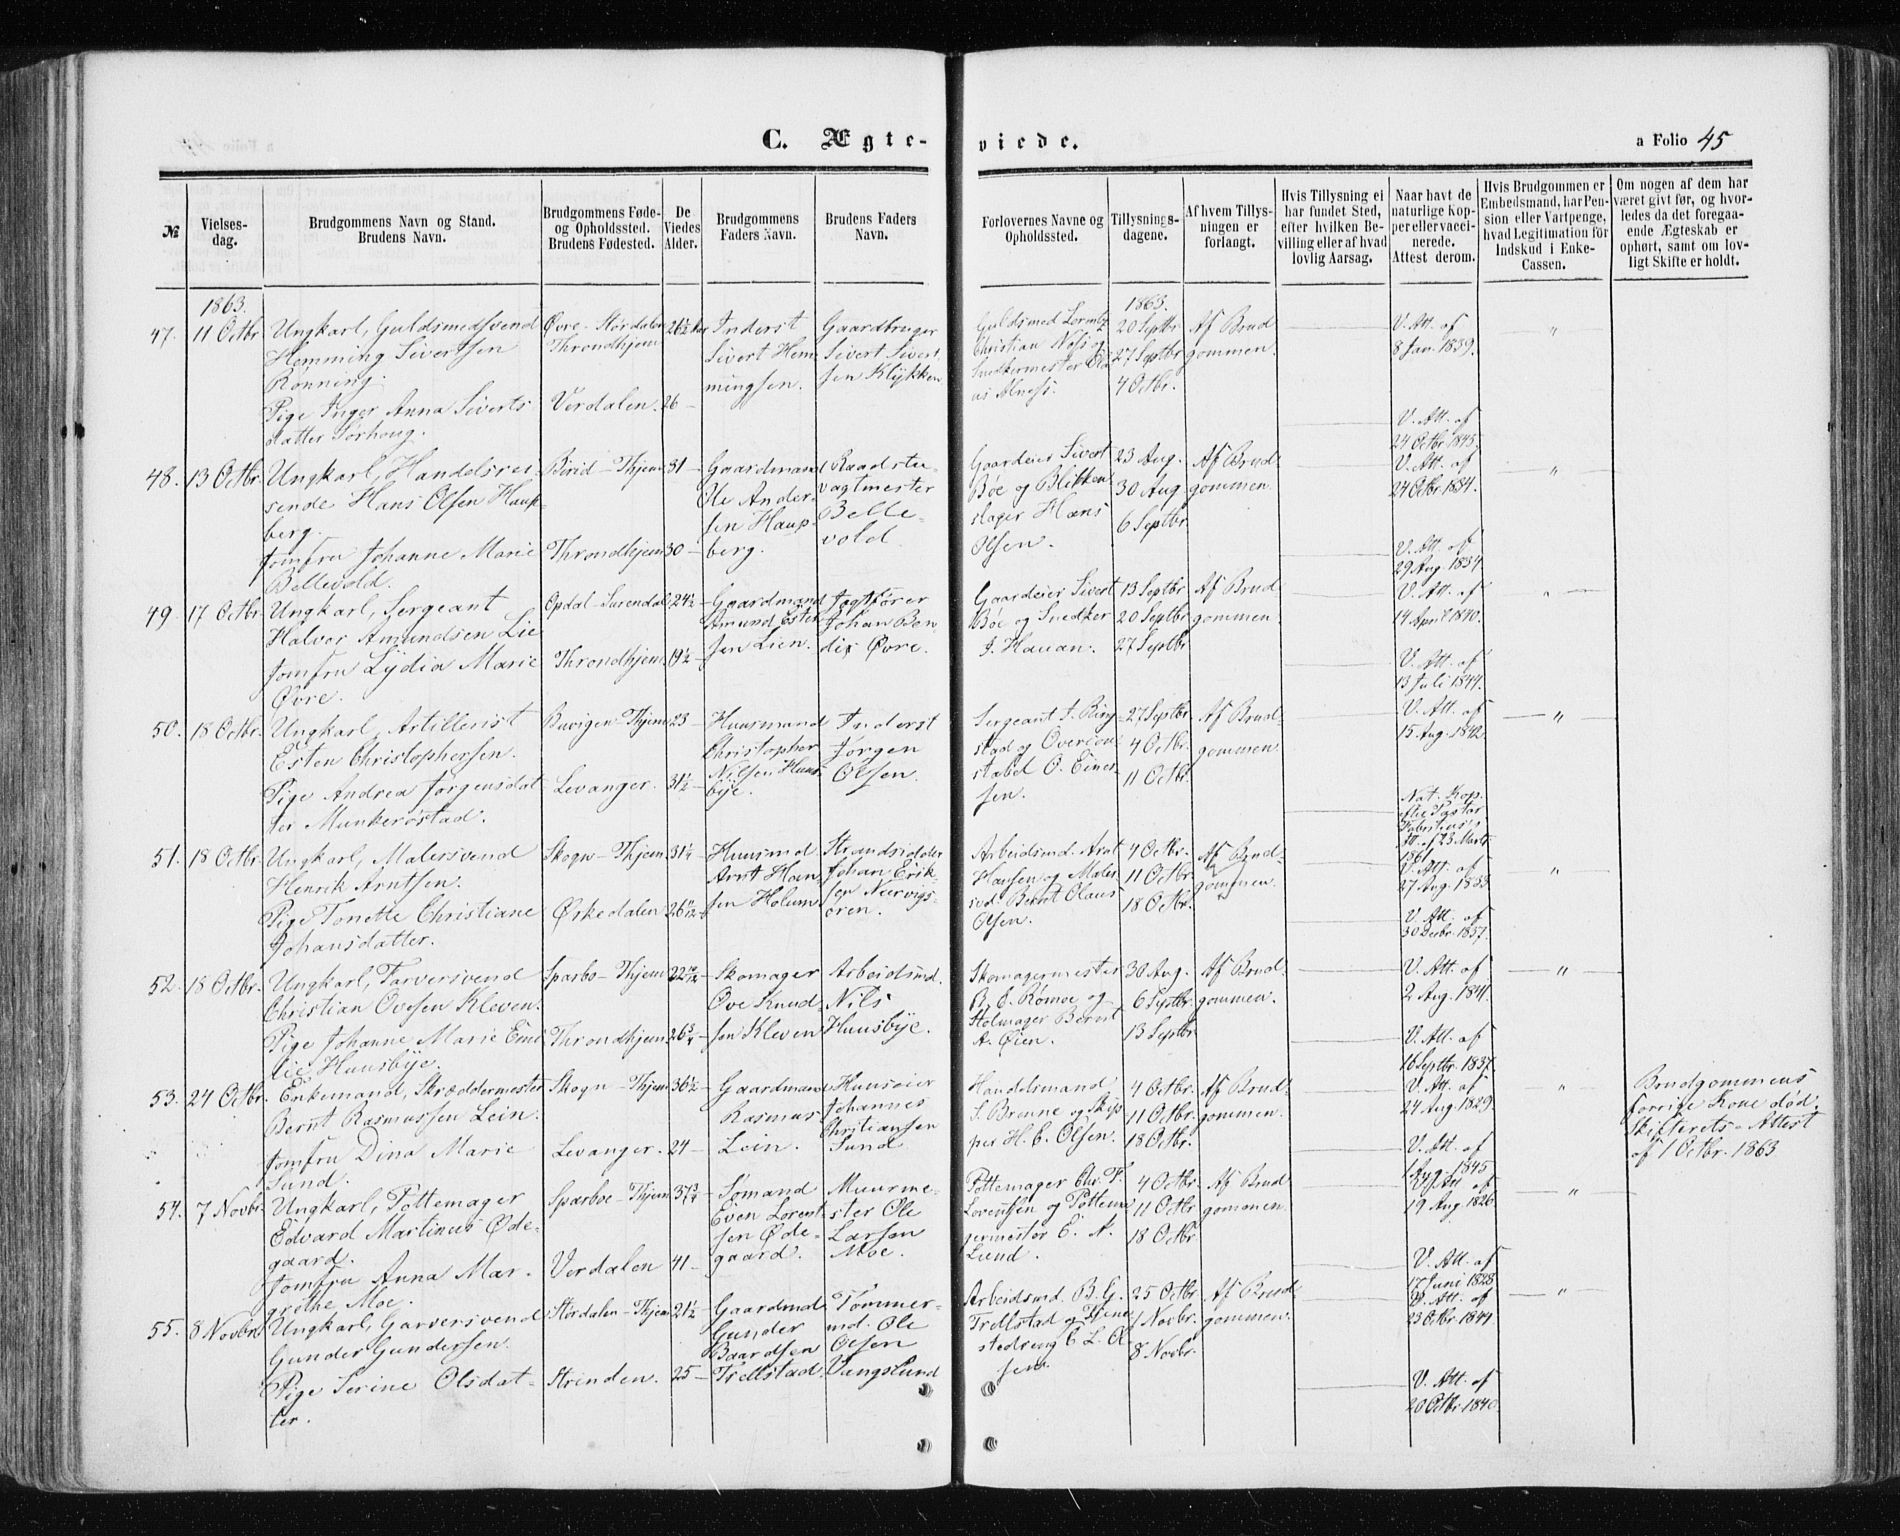 C. Ægte-
viede.
a Folio 45
№
Vielses-
dag.
Brudgommens Navn og Stand.
Brudens Navn.
Brudgommens Føde-
og Opholdssted.
Brudens Fødested.
De
Viedes
Alder.
Brudgommens
Faders Navn.
Brudens Faders
Navn.
Forlovernes Navne og
Opholdssted.
Tillysnings-
dagene.
Af hvem Tillys-
ningen er
forlangt.
Hvis Tillysning ei
har fundet Sted,
efter hvilken Be-
villing eller af hvad
lovlig Aarsag.
Naar havt de
naturlige Kop-
per eller vacci-
nerede.
Attest derom.
Hvis Brudgommen er
Embedsmand, har Pen-
sion eller Vartpenge,
hvad Legitimation for
Indskud i Enke-
Cassen.
Om nogen af dem har
været givt før, og hvor-
ledes da det foregaa-
ende Ægteskab er
ophørt, samt om lov-
ligt Skifte er holdt.
1863.
47. 11 Octbr.
Ungkarl, Guldsmedsvend
Hemming Sivertsen
Rønning.
Pige Inger Anna Siverts
datter Sørhoug.
Øvre-Størdalen
Throndhjem
Verdalen.
26½ Aar
26 —
Inderst
Sivert Hem
mingsen.
Gaardbruger
Sivert Sivert
sen Klykken
Guldsmed Lorentz
Christian Ness og
Snedkermester Ola
us Alness.
1863.
20 Septbr
27 Septbr
4 Octbr.
Af Brud
gommen.
V. Att. af
8 Jan. 1839.
V. Att. af
24 Octbr 1845.
48. 13 Octbr.
Ungkarl, Handelsrei
sende Hans Olsen Haup
berg.
Jomfru Johanne Marie
Bellevold.
Birid - Thjem
Throndhjem
31 —
30 —
Gaardmand
Ole Ander-
sen Haup
berg.
Raadstu-
vagtmester
Belle-
vold.
Gaardeier Sivert
Bøe og Blikken
slager Hans
Olsen.
23 Aug.
30 Aug
6 Septbr
Af Brud-
gommen.
V. Att. af
24 Octbr. 1834.
V. Att. af
29 Aug. 1834
49. 17 Octbr.
Ungkarl, Sergeant
Halvor Amundsen Lie
Jomfru Lydia Marie
Øvre.
Opdal - Surendal
Throndhjem
24½ —
19½ —
Gaardmand
Amund Ester
sen Lien.
Jagtfører
Johan Ben-
dix Øvre.
Gaardeier Sivert
Bøe og Snedker
J. Hauan.
13 Septbr
20 Septbr
27 Septbr
Af Brud
gommen.
V. Att. af
14 April 1840.
V. Att. af
13 Juli 1844.
50. 18 Octbr.
Ungkarl, Artillerist
Esten Christophersen.
Pige Andrea Jørgensdat
ter Munkerøstad.
Buvigen - Thjem
Levanger.
23 —
31½ —
Huusmand
Christopher
Nilsen Huus-
bye.
Inderst
Jørgen
Olsen.
Sergeant J. Ring
stad og Overcon
stabel O. Einer-
sen.
27 Septbr
4 Octbr.
11 Octbr.
Af Brud
gommen.
V. Att. af
15 Aug. 1842.
Nat. Kop.
efter Pastor
Fabritius'
Att. af 23 Marts
1861
51. 18 Octbr.
Ungkarl, Malersvend
Henrik Arntsen.
Pige Tonette Christiane
Johansdatter.
Skogn - Thjem
Ørkedalen
31¼ —
26 11/12 —
Huusmd
Arnt Han
sen Holum
Strandsidder
Johan Erik-
sen Nærvigs-
øren.
Arbeidsmd. Arnt
Hansen og Maler
svd Bernt Olaus
Olsen.
4 Octbr.
11 Octbr.
18 Octbr.
Af Brud-
gommen.
V. Att. af
27 Aug. 1833
V. Att. af
30 Decbr. 1857.
52. 18 Octbr.
Ungkarl, Farversvend
Christian Ovesen Kleven.
Pige Johanne Marie Emi
lie Huusbye.
Sparbo - Thjem
Throndhjem
22 10/12 —
26¾ —
Skomager
Ove Knud-
sen Kleven
Arbeidsmd.
Nils
Huusbye.
Skomagermester
B. E. Rømoe og
Stolmager Bernt
A. Øien.
30 Aug.
6 Septbr.
13 Septbr
Af Brud-
gommen.
V. Att. af
2 Aug. 1841.
V. Att. af
16 Septbr. 1837.
53. 24 Octbr.
Enkemand, Skræddermester
Bernt Rasmussen Lein.
Jomfru Dina Marie
Sund.
Skogn - Thjem
Levanger.
36½ —
24 —
Gaardmand
Rasmus
Lein.
Huuseier
Johannes
Christiansen
Sund
Handelsmand
J. Brenne og Skip
per H. C. Olsen.
4 Octbr.
11 Octbr.
18 Octbr.
Af Brud-
gommen.
V. Att. af
24 Aug. 1829.
V. Att. af
1 Aug. 1845
Brudgommens
forrige Kone død.
Skifterets-Attest
af 1 Octbr. 1863
54. 7 Novbr.
Ungkarl, Pottemager
Edvard Martinus Øde-
gaard.
Jomfru Anna Mar-
grethe Moe.
Sparboe - Thjem
Verdalen
37¾ —
41 —
Sømand
Even Lorent
sen Øde-
gaard.
Muurme-
ster Ole
Larsen
Moe.
Pottemager Chr. F.
Lorentsen og Pottema
germester E. A.
Lund.
4 Octbr.
11 Octbr
18 Octbr.
Af Brud
gommen.
V. Att. af
19 Aug. 1826
V. Att. af
17 Juni 1828
55. 8 Novbr.
Ungkarl, Garversvend
Gunder Gundersen.
Pige Serine Olsdat-
ter.
Størdalen - Thjem
Strinden.
21½
25 —
Gaardmd.
Gunder
Baardsen
Trellstad.
Tømmer-
md. Ole
Olsen
Vangslund
Arbeidsmd. B. G.
Trellstad og Tjene
stedreng E. L. Ol
sen.
25 Octbr.
1 Novbr.
8 Novbr.
Af Brud
gommen.
V. Att. af
23 Octbr. 1844
V. Att. af
20 Octbr. 1840.